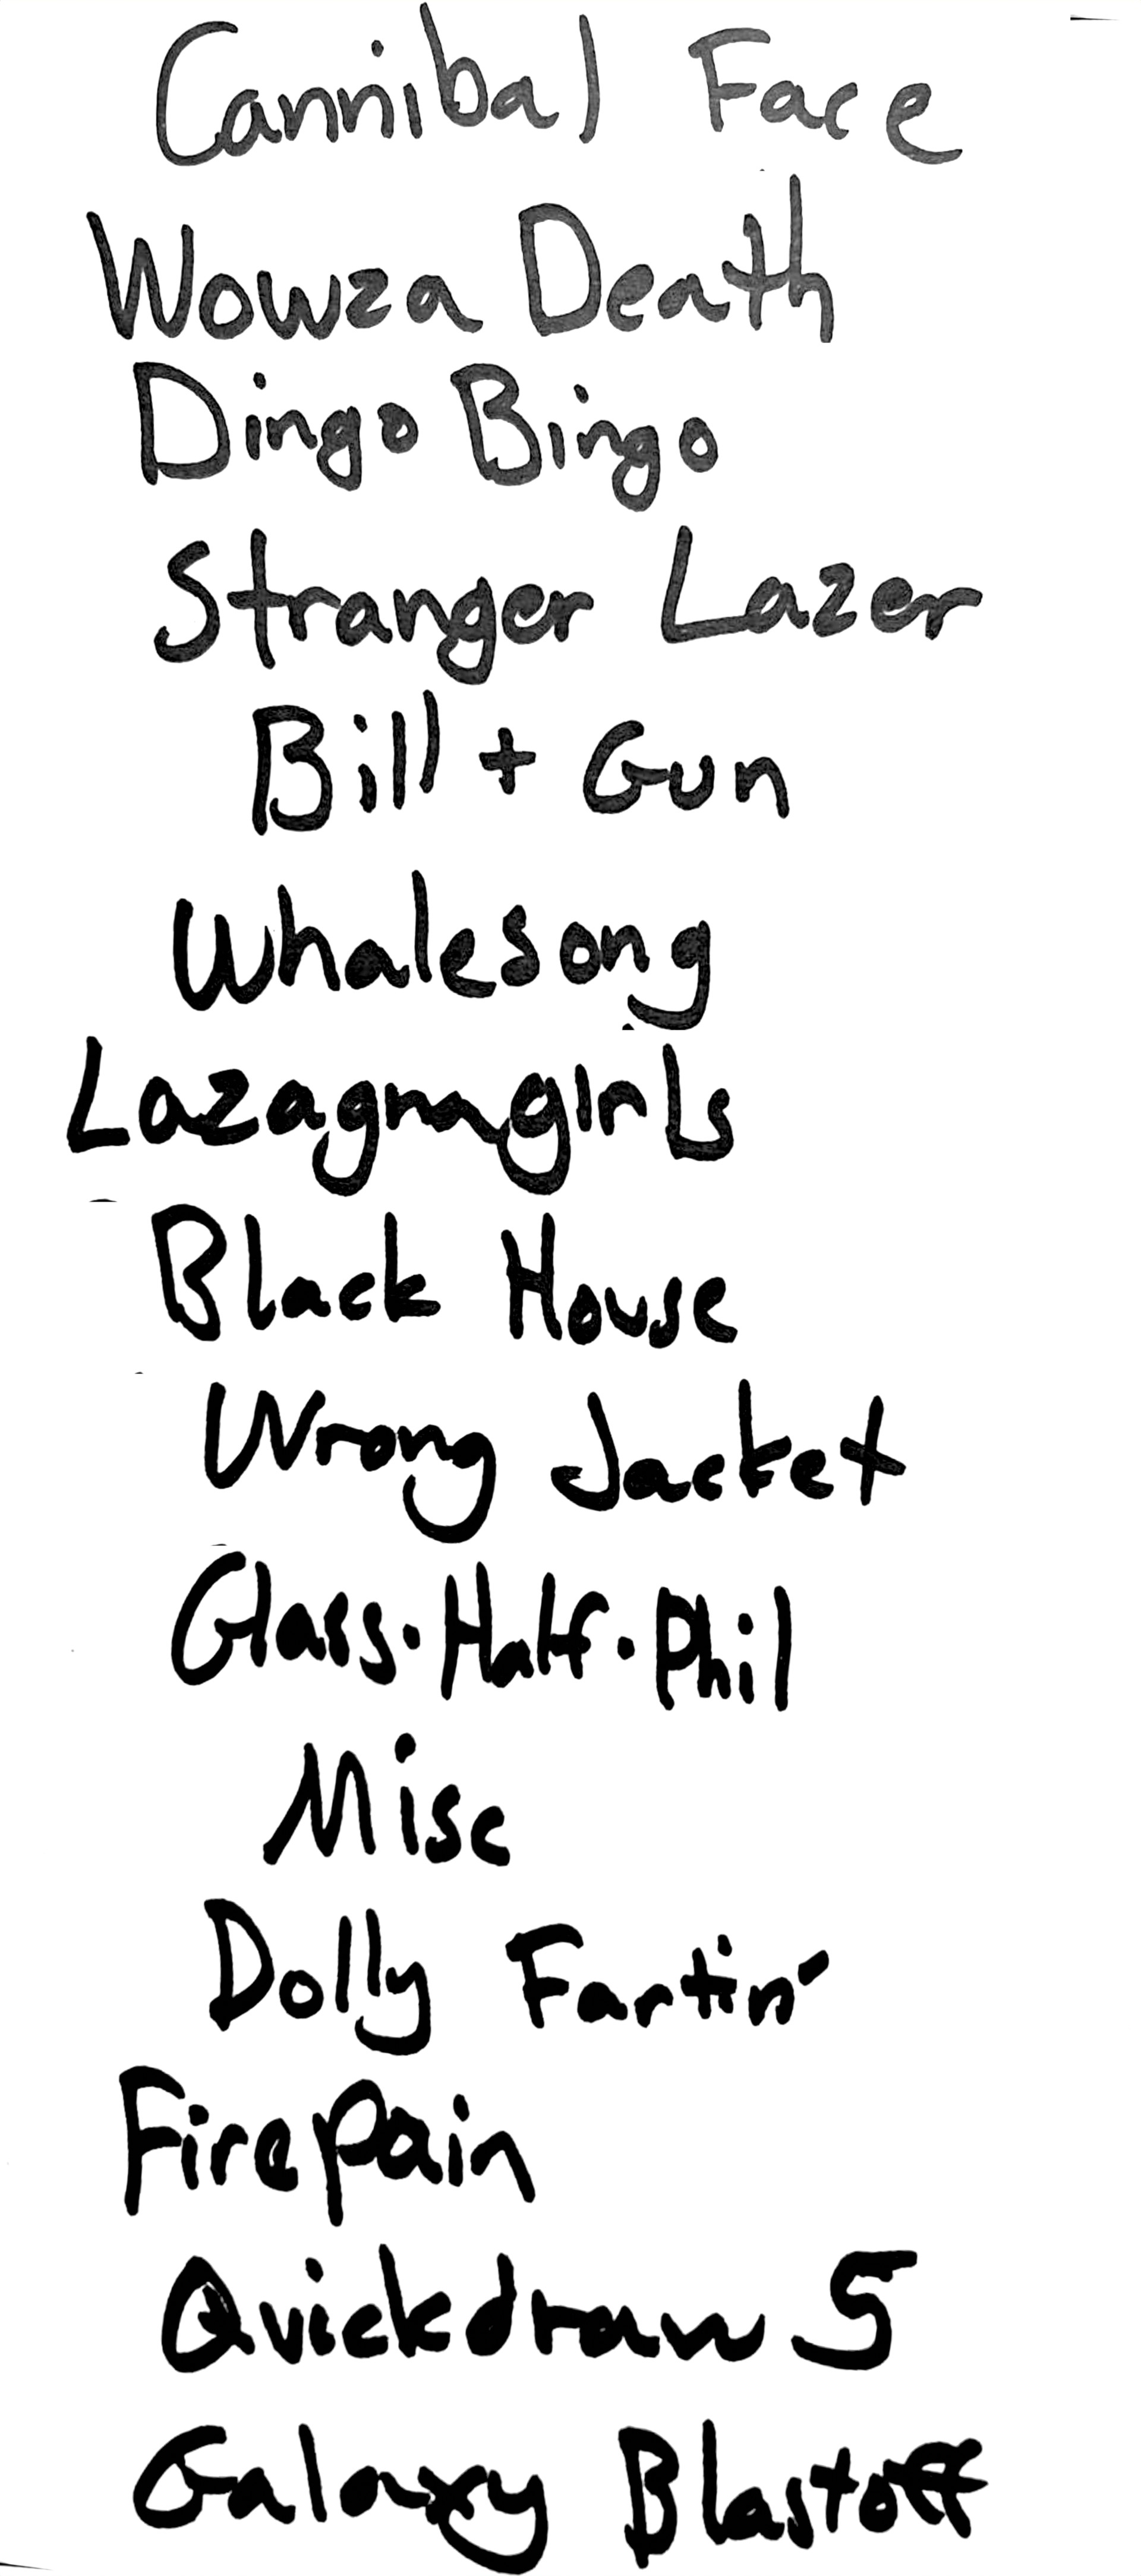 Cannibal Face
Wowza Death
Dingo Bingo
Stranger Lazer
Bill + Gun
Whalesong
Lazagnagirls
Black House
Wrong Jacket
Glass·Half·Phil
Misc
Dolly Fartin'
Firepain
Quickdraw 5
Galaxy Blastoff